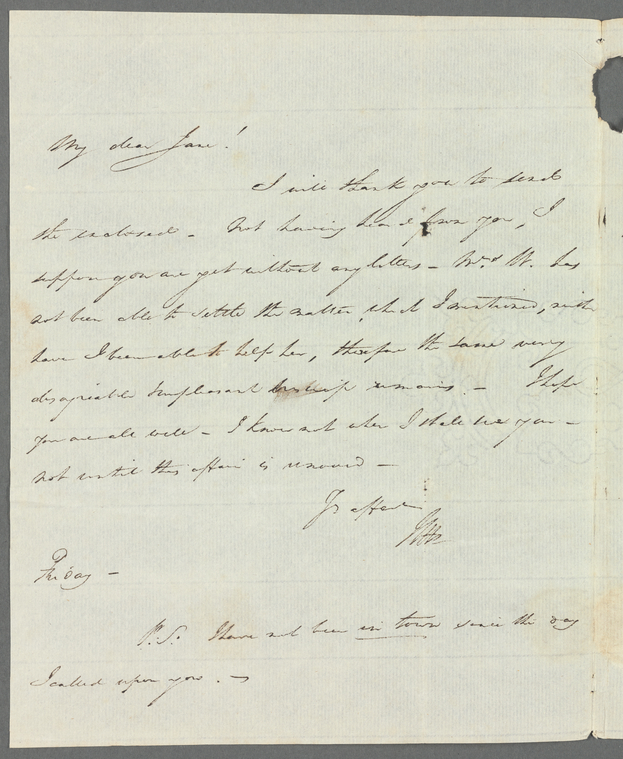 My dear Jane!
I will thank you to send
the enclosed - Not having heard from you, I
suppose you are yet without any letters - Mrs. W. has
not been able to settle the matter which I mentioned, neither
have I been able to help her, therefore the same very
disagreeable & unpleasant remains. - I hope
you are all well - I know not when I shall see you -
not until this affair is removed -
Yrs affect
Friday -
P.S. I have not been in town since the day
I called upon you. -